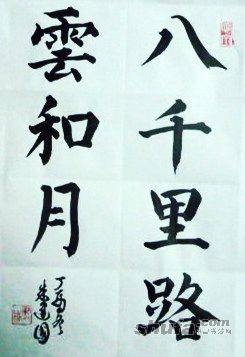 八千里路
雲和月
丁酉冬